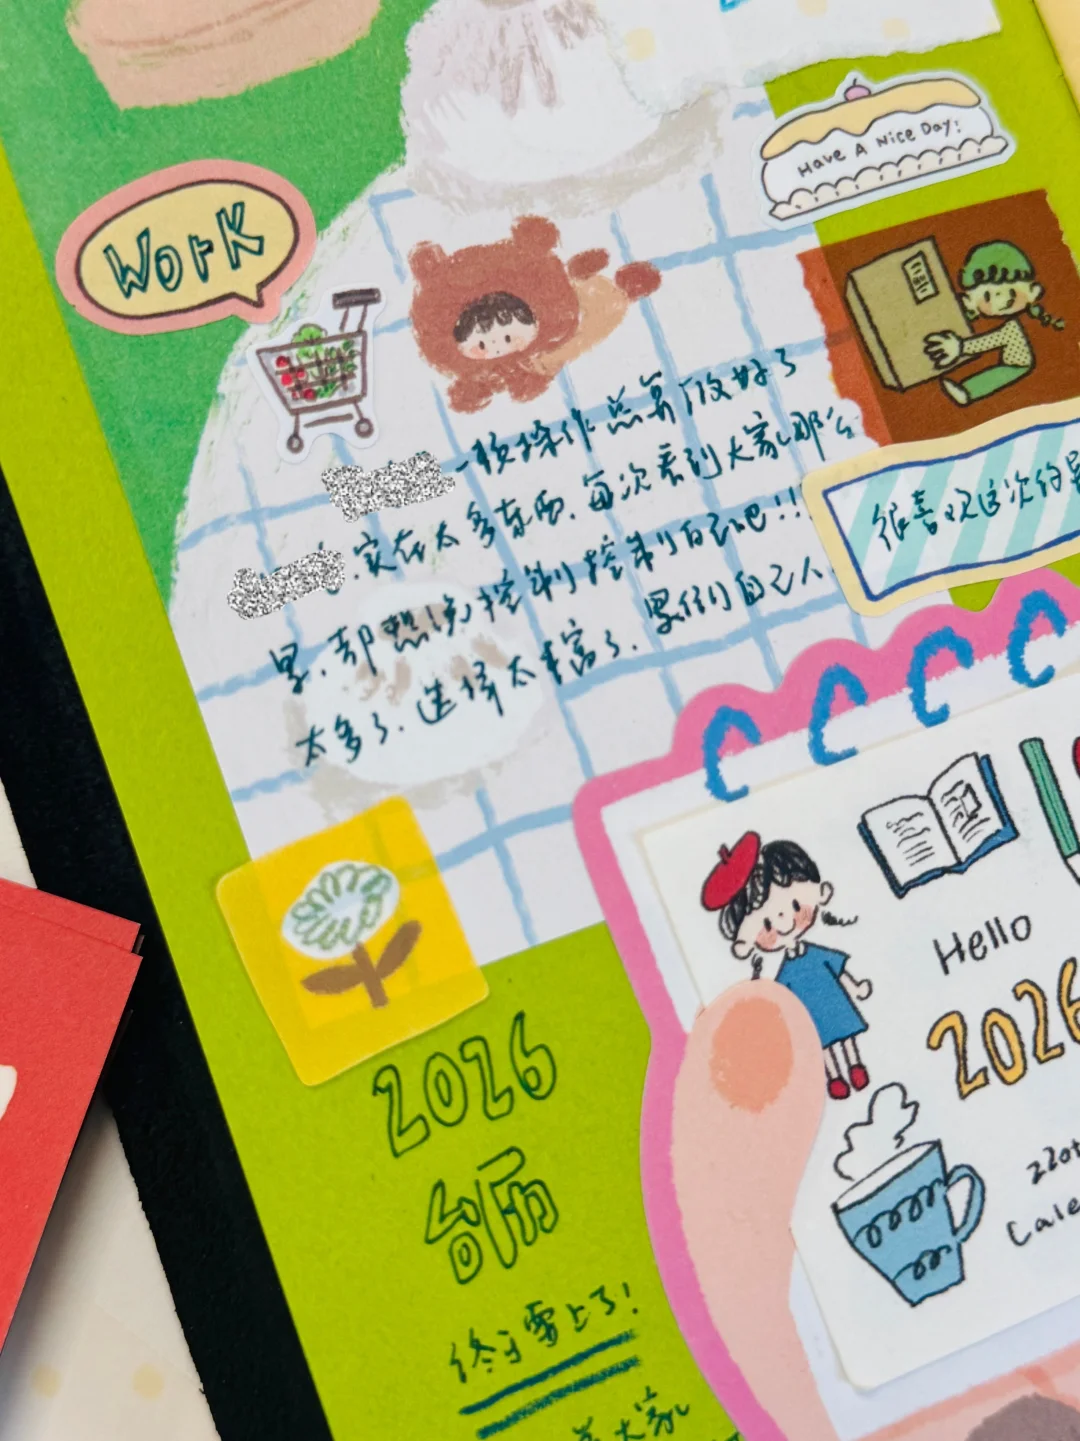 Have A Nice Day!
Work
一顿操作总算做好了
家在太多东西.每次看到大家那么
累.都想说控制控制自己吧!!
太多了.选择太丰富了.累倒自己人
很喜欢这次的
Hello
2026
2026
台历
终于要上了!
大家